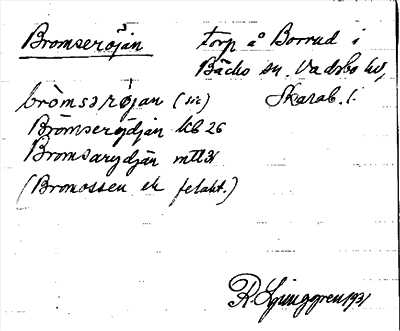 Bromseröjän torp å Borrud i
Bäcks sn. Vadsbo hd,
bròmsərøjan (sic) Skarab. l.
Brömseröjdjän kb 26
Bromsarydjän mtl 31
(Bromossen ek felakt.)
R. Ljunggren 1931